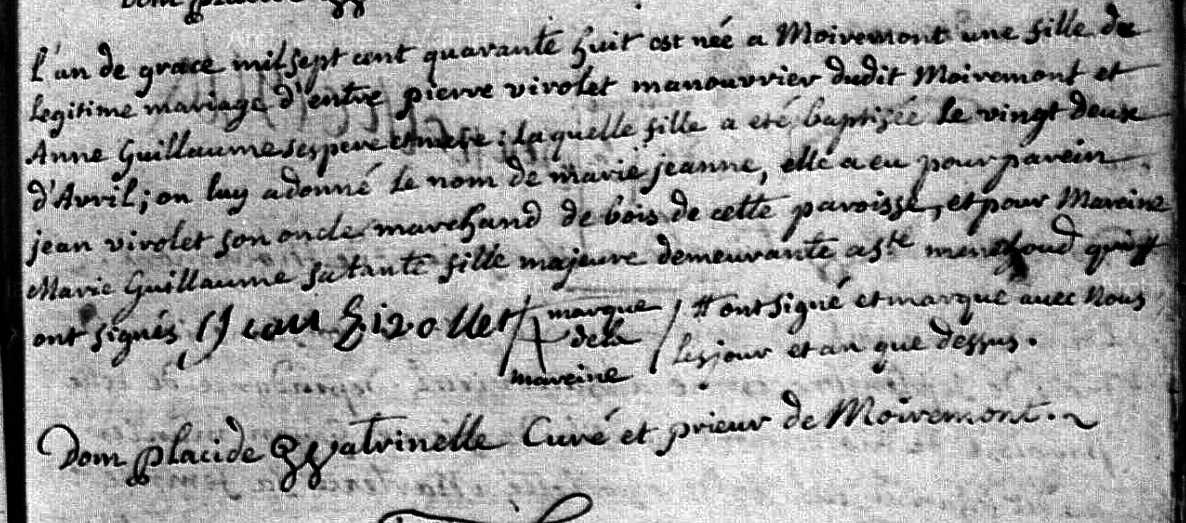 l'an de grace mil sept cent quarante huit est née a Moiremont une fille du
legitime mariage d'entre pierre virolet manouvrier dudit Moiremont et
Anne Guillaume ses pere et mere : laquelle fille a eté baptisée le vingt deux
d'Avril ; on luy a donné le nom de marie jeanne, elle a eu pour parein
jean virolet son oncle marchand de bois de cette paroisse, et pour Mareine
Marie Guillaume sa tante fille majeure demeurante a ste menehoud qui #
ont signés Jean Virollet / marque de la mareine / # ont signé et marque avec Nous
les jour et an que dessus.
Dom placide Curé et prieur de Moiremont.